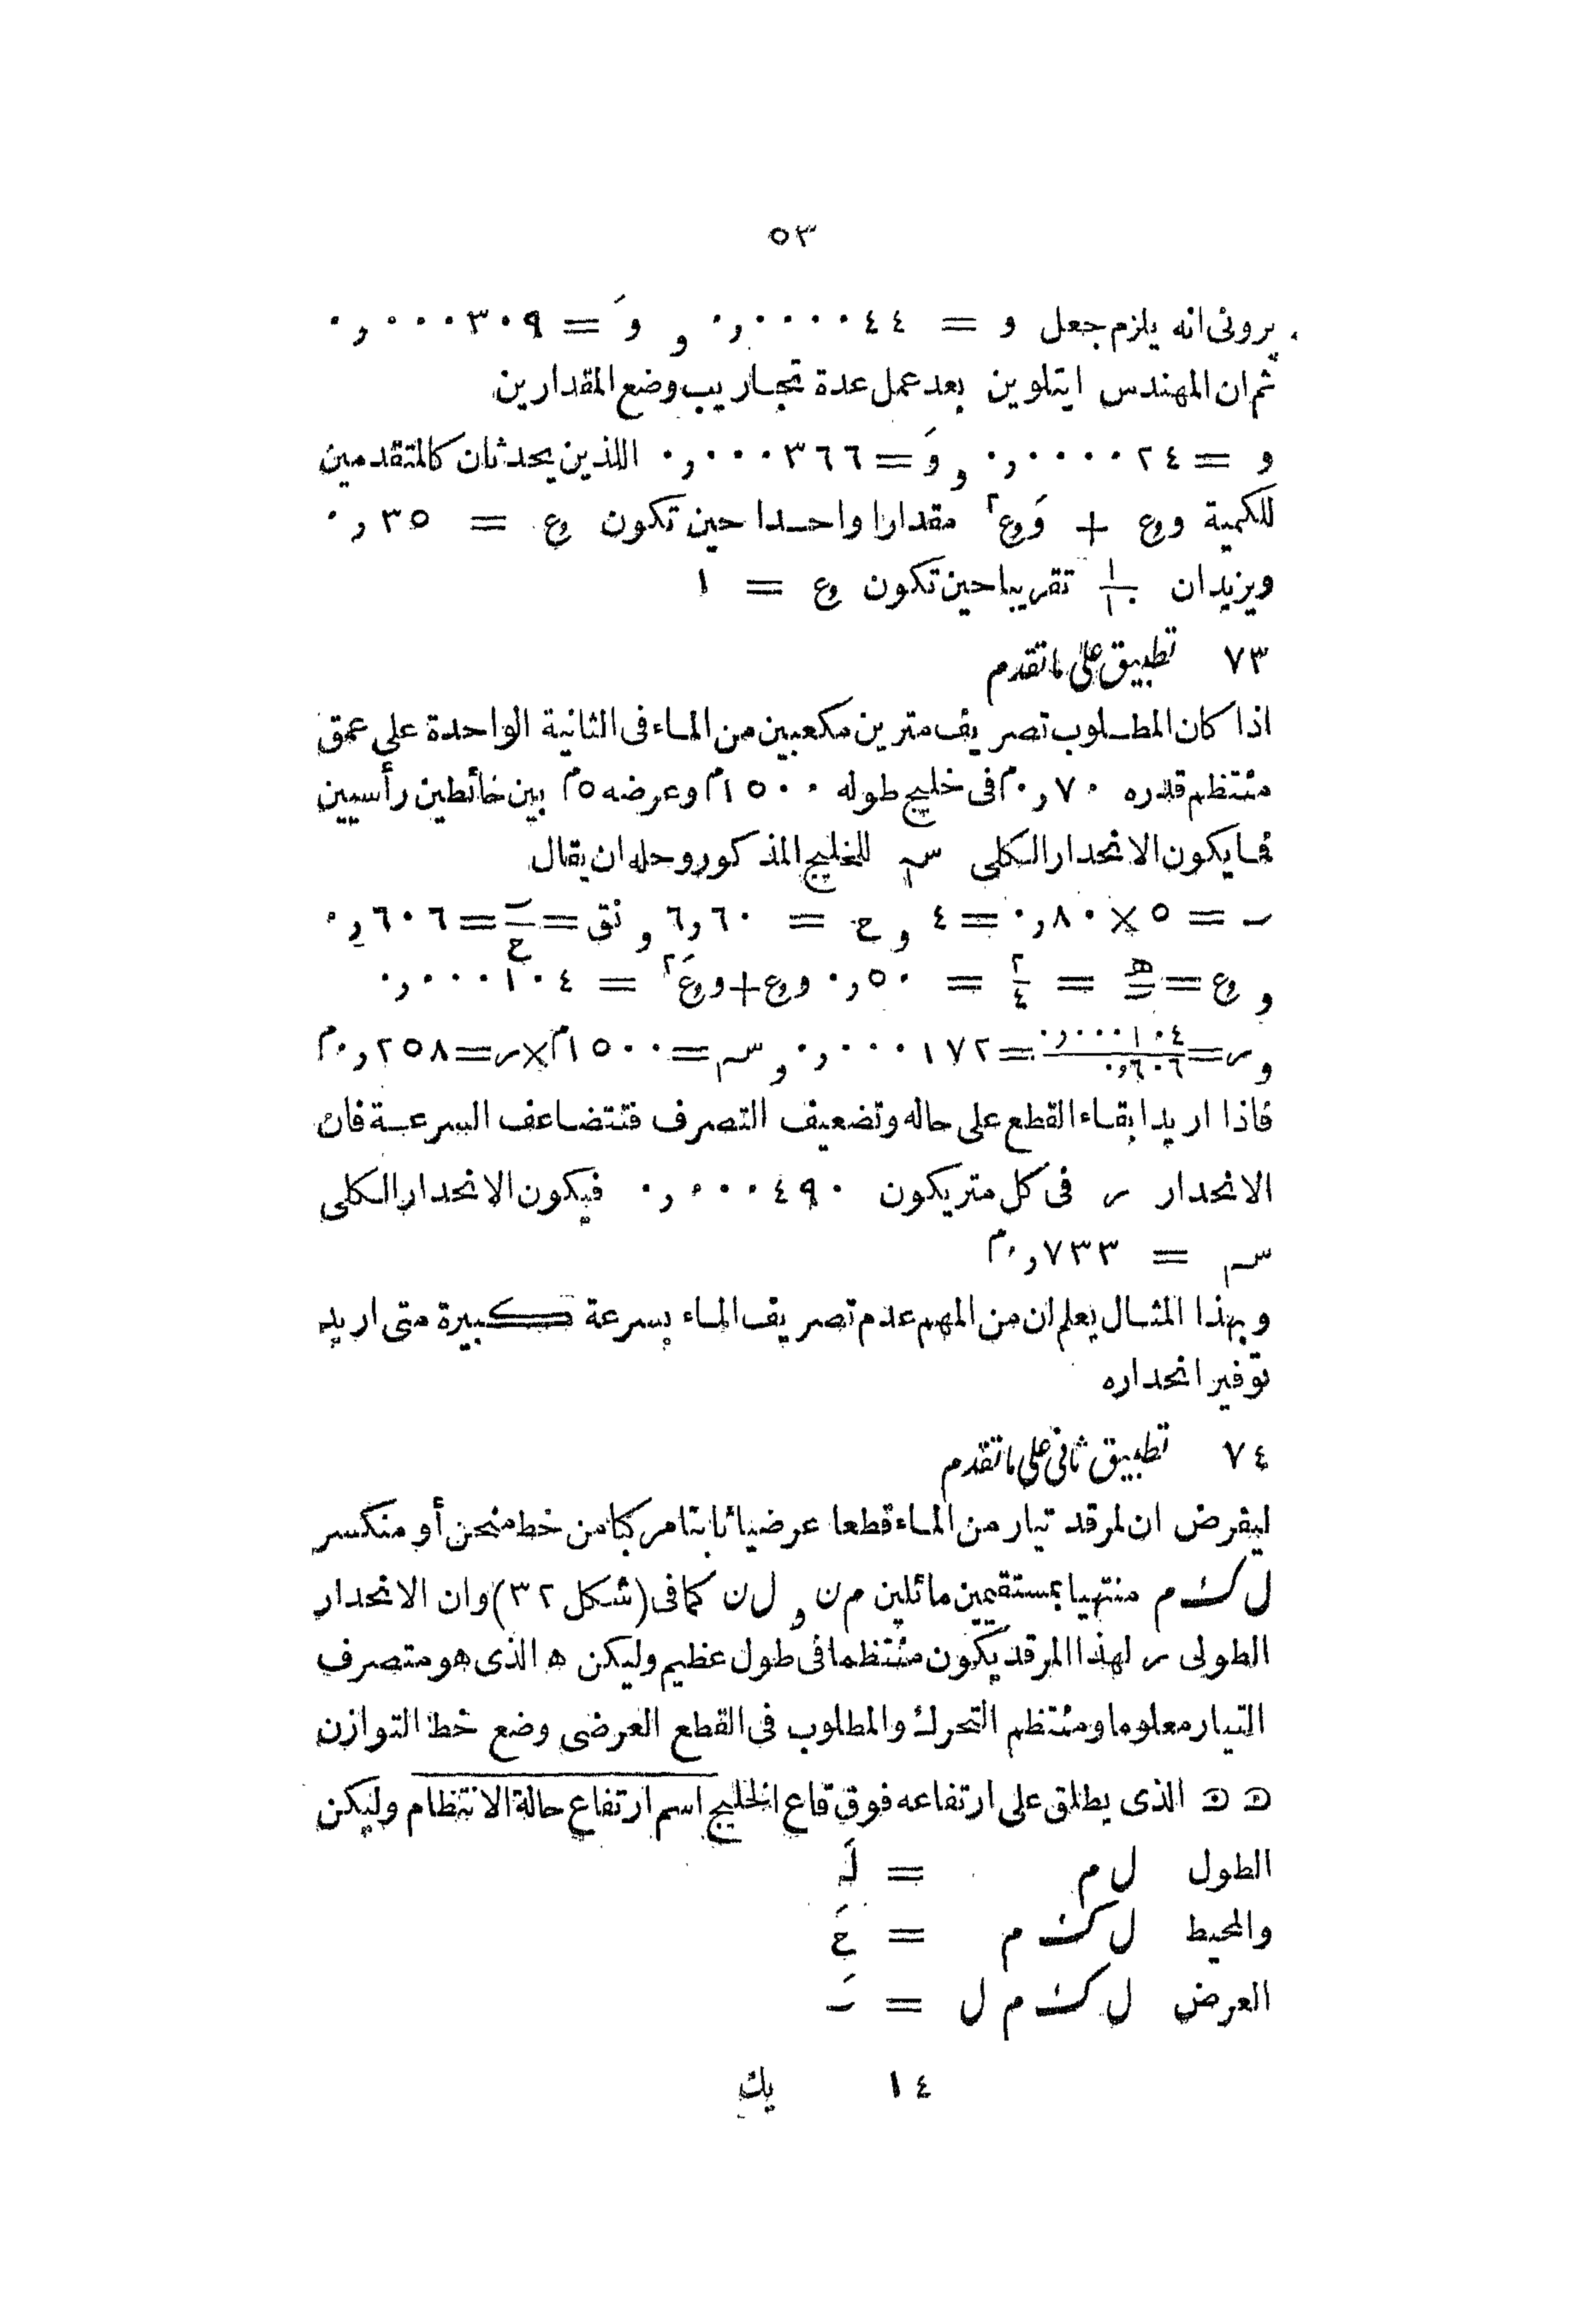 ٥٣
برونى انه يلزم جعل و = ٠٫٠٠٠٠٤٤ و وَ = ٠٫٠٠٠٣٠٩
ثم ان المهندس ايتلوين بعد عمل عدة تجاريب وضع المقدارين
و = ٠٫٠٠٠٠٢٤ و وَ = ٠٫٠٠٠٣٦٦ اللذين يحدثان كالمتقدمين
للكمية وع + وَع٢ مقدارا واحدا حين تكون ع = ٠٫٣٥
ويزيدان ١/١٠ تقريبا حين تكون ع = ١
٧٣ تطبيق على ما تقدم
اذا كان المطلوب تصريف مترين مكعبين من الماء فى الثانية الواحدة على عمق
منتظم قدره ٠٫٧٠م فى خليج طوله ١٥٠٠م وعرضه ٥م بين حائطين رأسيين
فما يكون الانحدار الكلى سم للخليج المذكور وحله ان يقال
ٮ = ٥ × ٠٫٨٠ = ٤ و ح = ٦٫٦٠ و نق = ٮ/ح = ٠٫٦٠٦
و ع = ه/ٮ = ٢/٤ = ٠٫٥٠ وع + وعَ٢ = ٠٫٠٠٠١٠٤
و ر = ٠٫٠٠٠١٠٤/٠٫٦٠٦ = ٠٫٠٠٠١٧٢ و سم = ١٥٠٠م × ر = ٠٫٢٥٨م
فاذا اريد ابقاء القطع على حاله وتضعيف التصرف فتتضاعف السرعة فان
الانحدار ر فى كل متر يكون ٠٫٠٠٠٤٩٠ فيكون الانحدار الكلى
سم = ٠٫٧٣٣م
وبهذا المثال يعلم ان من المهم عدم تصريف الماء بسرعة كبيرة متى اريد
توفير انحداره
٧٤ تطبيق ثانى على ما تقدم
ليفرض ان لمرقد تيار من الماء قطعا عرضيا ثابتا مركبا من خط منحن أو منكسر
ل ك م منتهيا بمستقيمين مائلين م ن و ل ن كما فى (شكل ٣٢) وان الانحدار
الطولى ر لهذا المرقد يكون منتظما فى طول عظيم وليكن ه الذى هو متصرف
التيار معلوما ومنتظم التحرك والمطلوب فى القطع العرضى وضع خط التوازن
الذى يطلق على ارتفاعه فوق قاع الخليج اسم ارتفاع حالة الانتظام وليكن
الطول ل م = لَ
والمحيط ل ك م = حَ
العرض ل ك م ل = ٮَ
١٤ يك